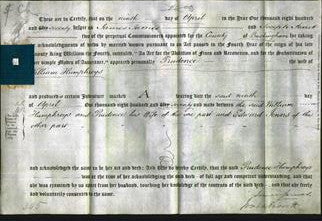 These are to Certify, that on the ninth day of April in the Year One thousand eight hundred
and seventy before us
two of the perpetual Commissioners appointed for the County of Buckingham for taking
the acknowledgments of deeds by married women pursuant to an Act passed in the Fourth Year of the reign of his late
Majesty King William the Fourth, intituled, "An Act for the Abolition of Fines and Recoveries, and for the Substitution of
more simple Modes of Assurance," appeared personally Prudence the wife of
William Humphreys
and produced a certain Indenture marked A bearing date the said ninth day
of April One thousand eight hundred and seventy and made between the said William
Humphreys and Prudence his Wife of the one part and Edward of the
other part
and acknowledged the same to be her act and deed; And we do hereby Certify, that the said Prudence Humphreys
was, at the time of her acknowledging the said deed, of full age and competent understanding, and that
she was examined by us apart from her husband, touching her knowledge of the contents of the said deed and that she freely
and voluntarily consented to the same.